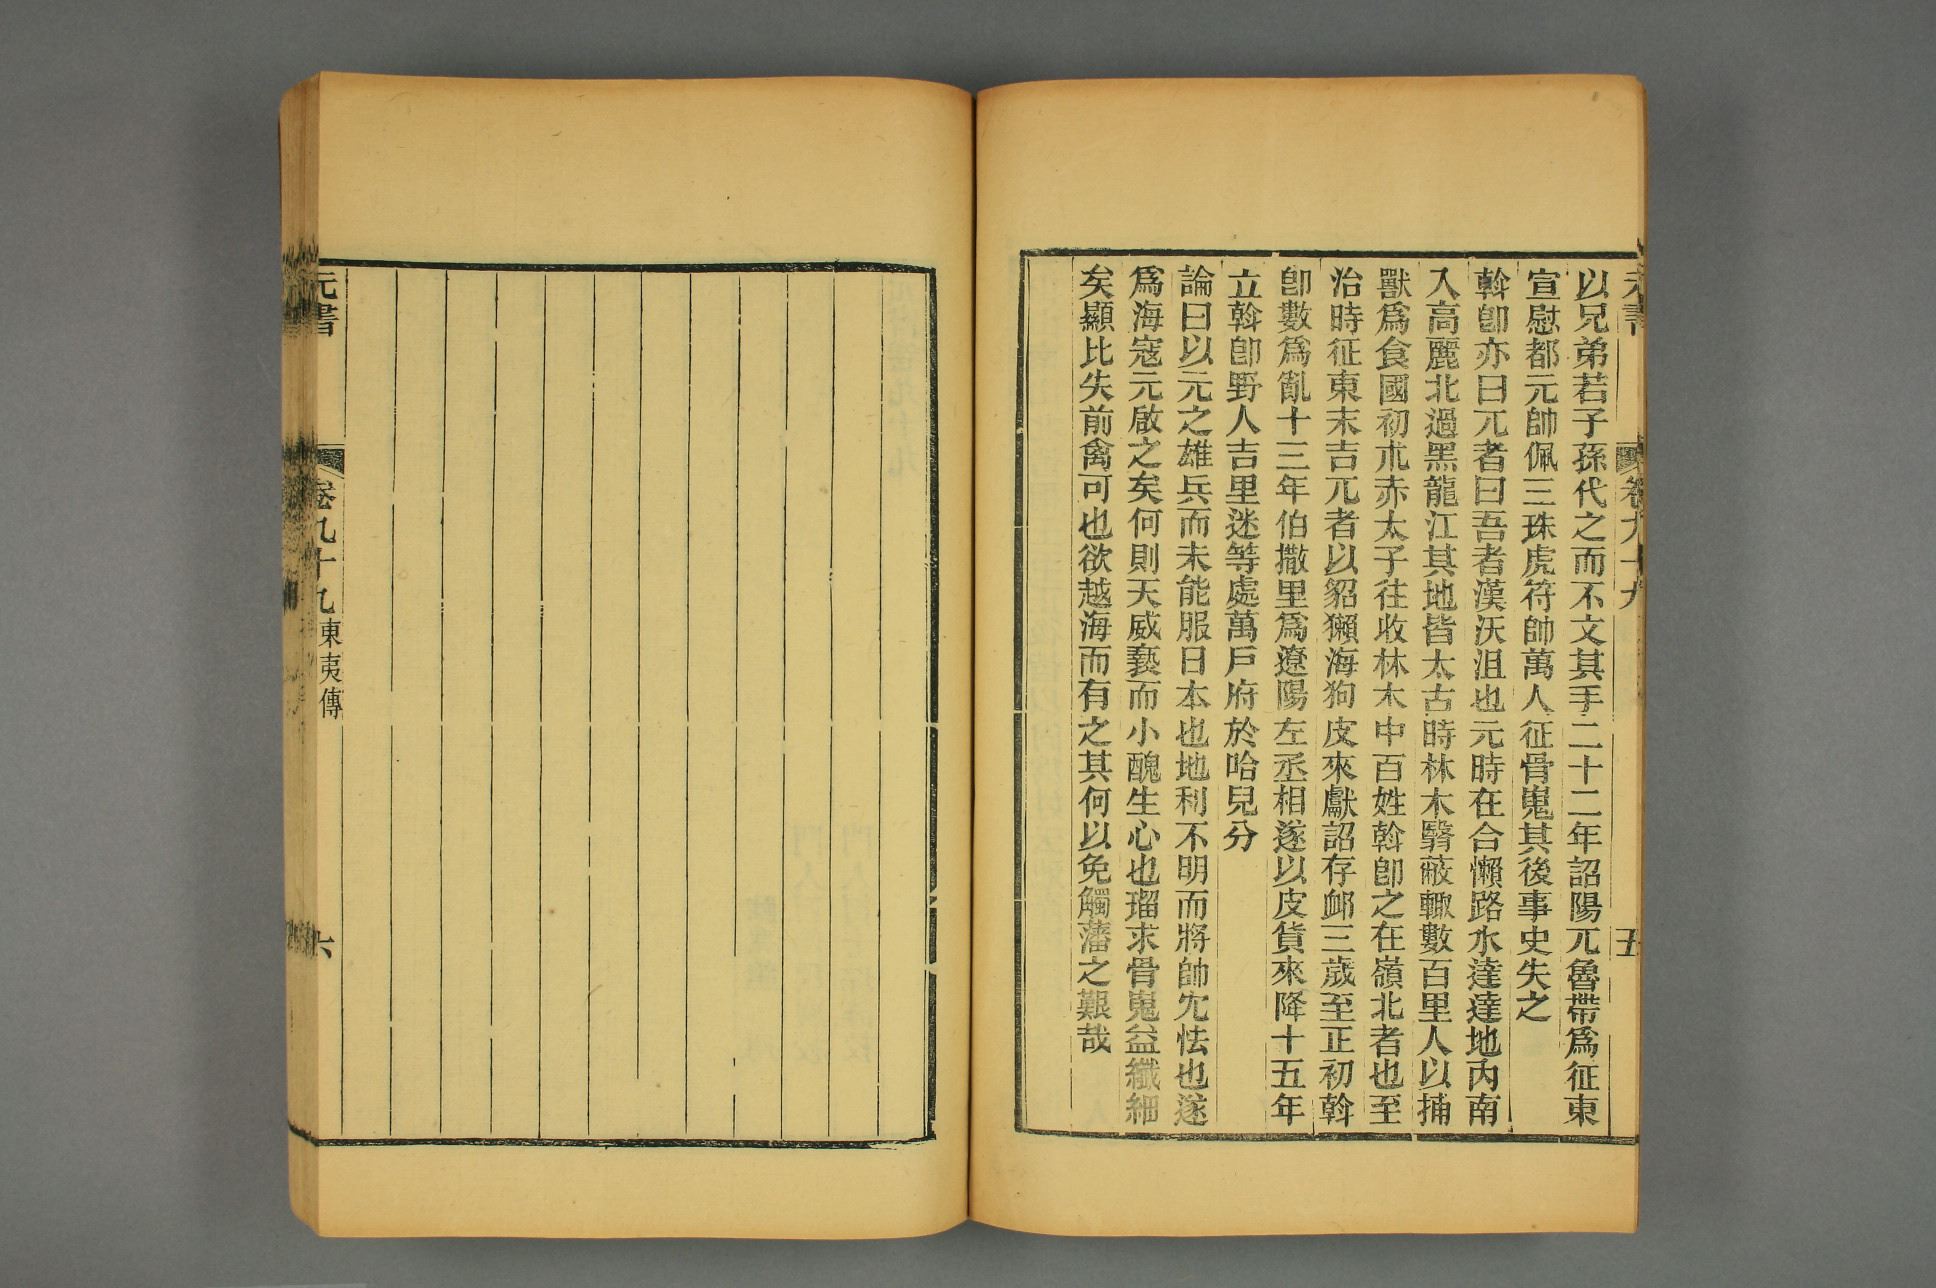 元書
卷九十九
五
以兄弟若子孫代之而不文其手二十二年詔陽兀魯帶爲征東
宣慰都元帥佩三珠虎符帥萬人征骨嵬其後事史失之
斡卽亦曰兀者曰吾者漢沃沮也元時在合懶路水達達地內南
入高麗北過黑龍江其地皆太古時林木翳蔽輙數百里人以捕
獸爲食國初朮赤太子往收林木中百姓斡卽之在嶺北者也至
治時征東末吉兀者以貂獺海狗皮來獻詔存䘏三歲至正初斡
卽數爲亂十三年伯撒里爲遼陽左丞相遂以皮貨來降十五年
立斡卽野人吉里迷等處萬戶府於哈兒分
論曰以元之雄兵而未能服日本也地利不明而將帥尤怯也遂
爲海寇元啟之矣何則天威褻而小醜生心也瑠求骨嵬益纖細
矣顯比失前禽可也欲越海而有之其何以免觸藩之艱哉
元書
卷九十九東夷傳
六